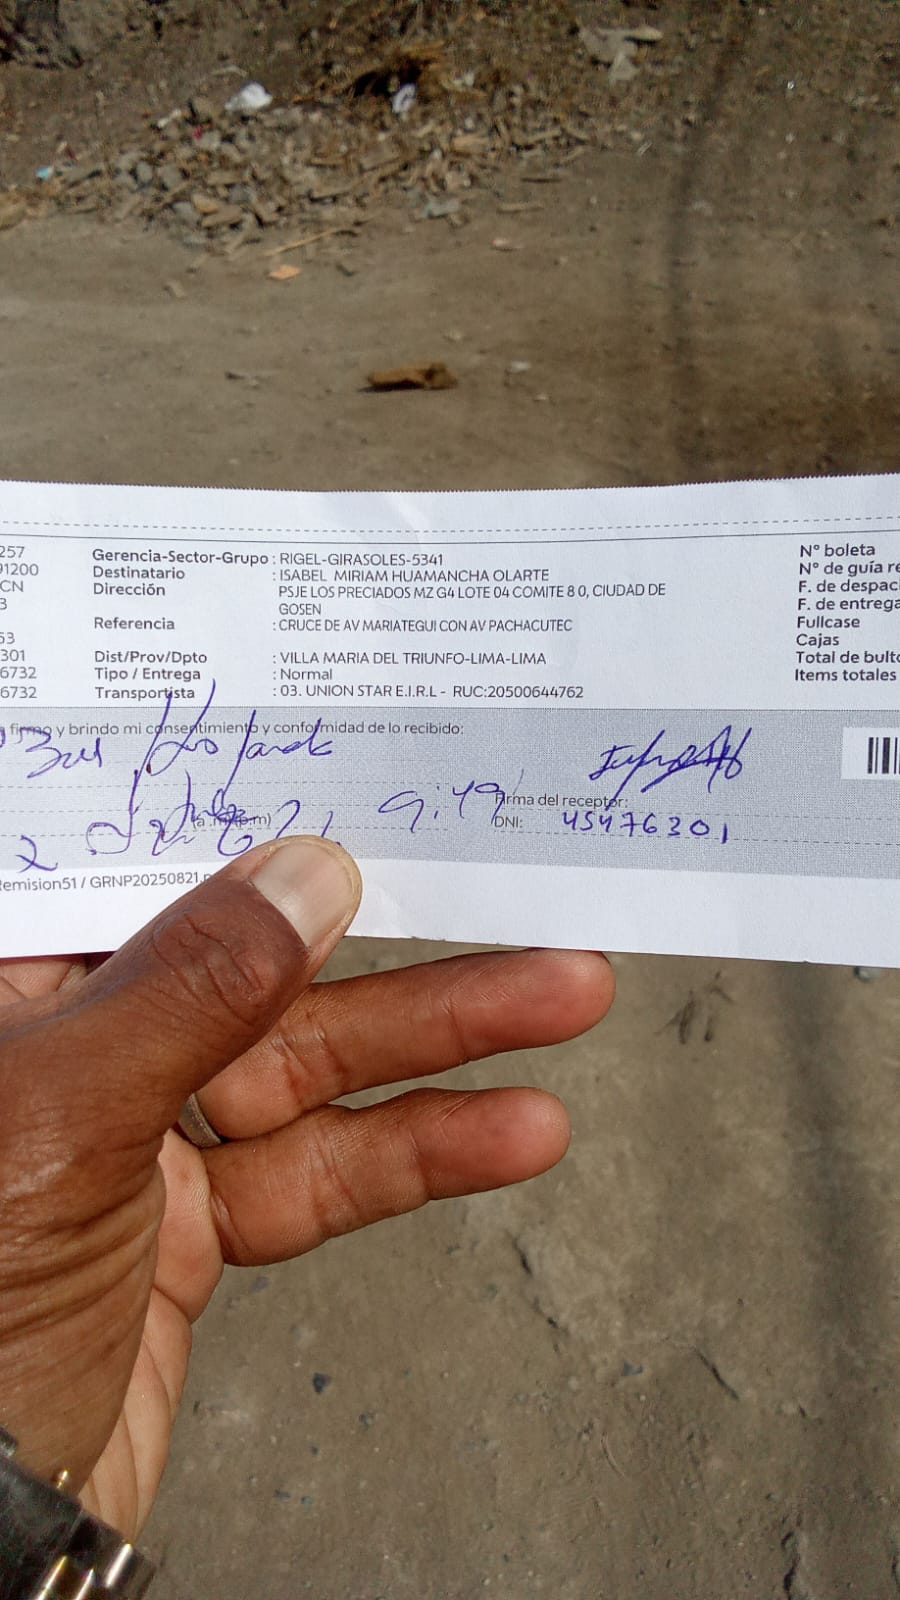 257 Gerencia-Sector-Grupo : RIGEL-GIRASOLES-5341 N° boleta
91200 Destinatario : ISABEL MIRIAM HUAMANCHA OLARTE N° de guía re
CN Dirección PSJE LOS PRECIADOS MZ G4 LOTE 04 COMITE 8 0, CIUDAD DE F. de despac
3 GOSEN F. de entrega
Referencia : CRUCE DE AV MARIATEGUI CON AV PACHACUTEC Fullcase
53 Cajas
301 Dist/Prov/Dpto : VILLA MARIA DEL TRIUNFO-LIMA-LIMA Total de bulto
6732 Tipo / Entrega : Normal Items totales
6732 Transportista : 03. UNION STAR E.I.R.L - RUC:20500644762
firmo y brindo mi consentimiento y conformidad de lo recibido:
9:49 Firma del receptor:
(a.m/p.m) DNI: 45476301
Remision51 / GRNP20250821.p